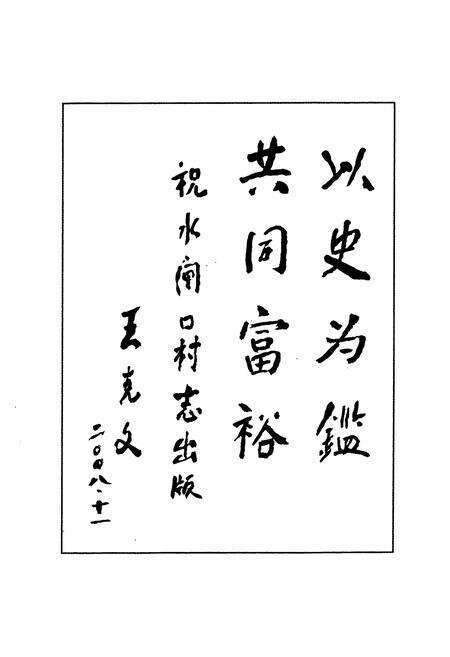 以史为鑑
共同富裕
祝水闸口村志出版
王克文
二〇〇八·十一